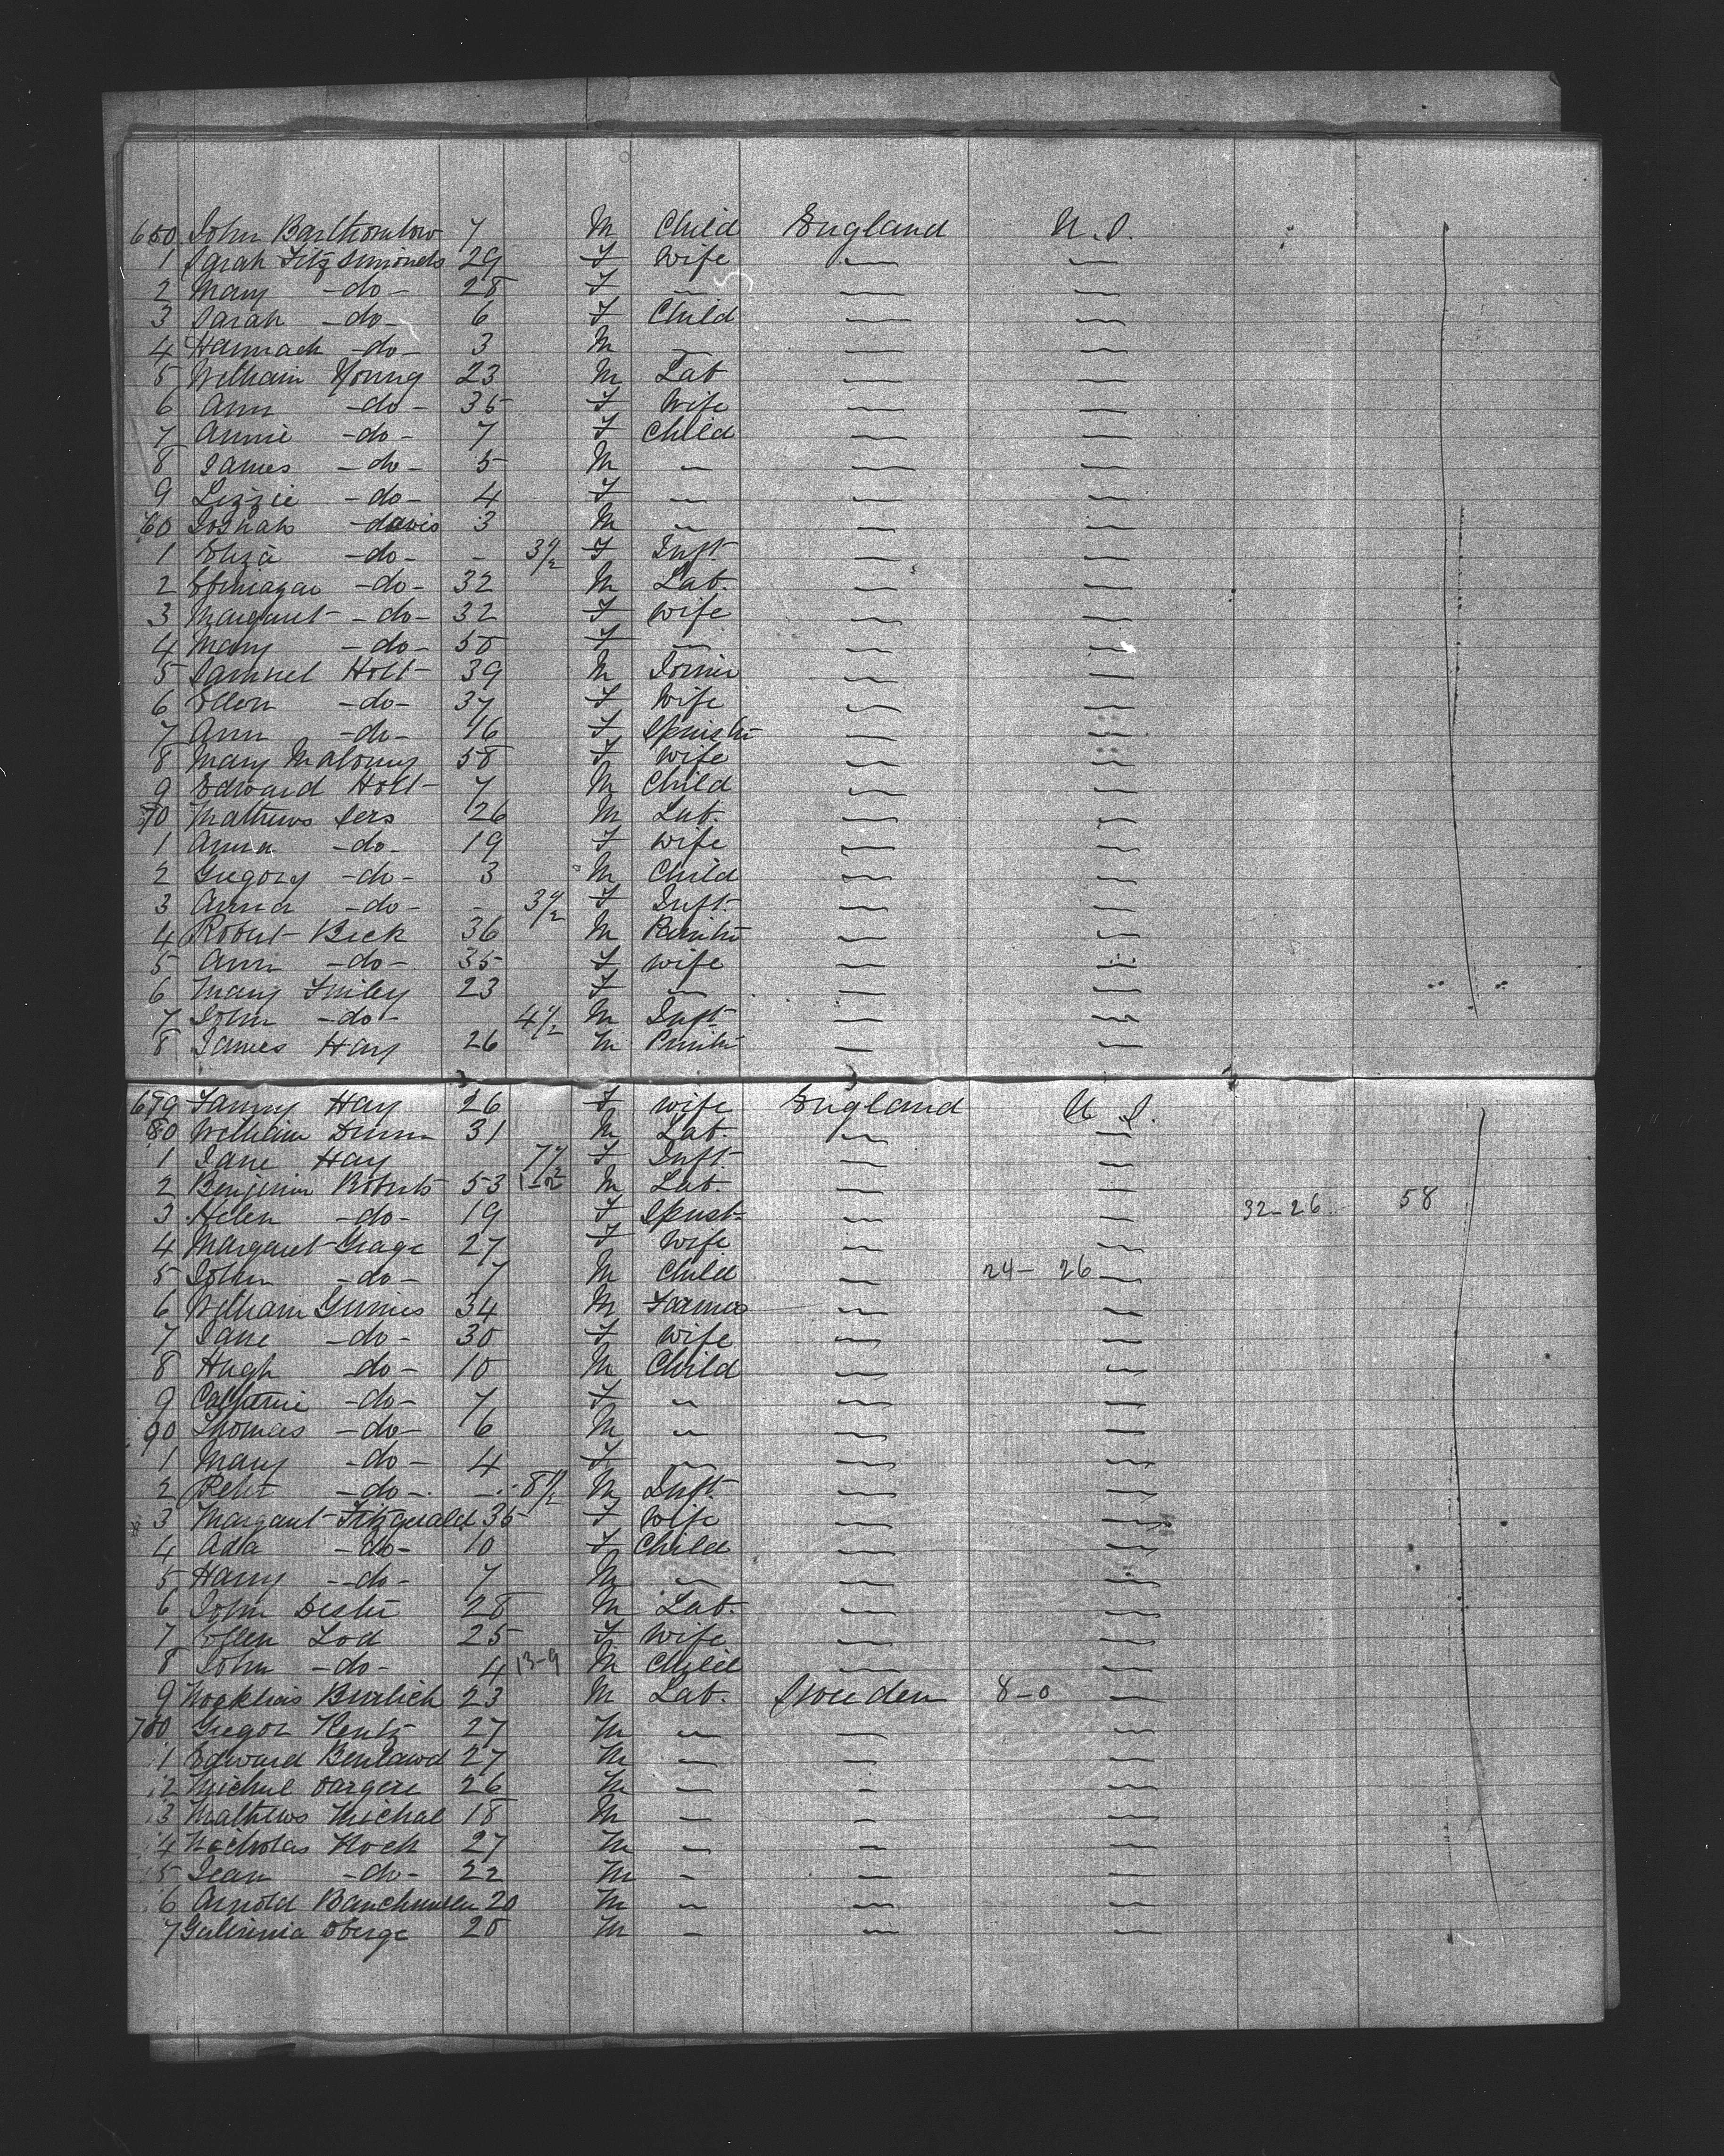 650 John Barthomlow 7 M Child England U.S.
1 Sarah Fitzsimonds 29 F Wife — —
2 Mary -do- 28 F — — —
3 Sarah -do- 6 F Child — —
4 Hannah -do- 3 M — — —
5 William Young 23 M Lab — —
6 Ann -do- 35 F Wife — —
7 Annie -do- 7 F Child — —
8 James -do- 5 M — — —
9 Lizzie -do- 4 F — — —
60 Josuah -davis 3 M — — —
1 Eliza -do- - 3/12 F Inft — —
2 -do- 32 M Lab. — —
3 Margaret -do- 32 F Wife — —
4 Mary -do- 50 F — — —
5 Samuel Holt 39 M Joiner — —
6 Ellen -do- 37 F Wife — —
7 Ann -do- 16 F Spinstr — —
8 Mary Malony 58 F Wife — —
9 Edward Holt 7 M Child — —
70 Mathews Sers 26 M Lab. — —
1 Anna -do- 19 F Wife — —
2 Gregory -do- 3 M Child — —
3 Anna -do- - 3/12 F Inft. — —
4 Robert Beck 36 M — —
5 Ann -do- 35 F Wife — —
6 Mary Finley 23 F — — —
7 John -do- 4/12 M Inft — —
8 James Hay 26 M — —
679 Fanny Hay 26 F Wife England U.S.
80 William Dunn 31 M Lab. — —
1 Jane Hay 7/12 F Inft — —
2 Benjimin Roberts 53 1-2 M Lab. — —
3 Helen -do- 19 F Spnst- — — 32-26 58
4 Margaret Grage 27 F Wife — —
5 John -do- 7 M Child — 24-26 —
6 William Grimes 34 M Farmer — —
7 Jane -do- 30 F Wife — —
8 Hugh -do- 10 M Child — —
9 Catharine -do- 7 F — — —
90 Thomas -do- 6 M — — —
1 Mary -do- 4 F — — —
2 Robt -do- - 8/12 M Inft. — —
3 Margaret Fitzgerald 35 F Wife — —
4 Ada -do- 10 F Child — —
5 Harry -do- 7 M — — —
6 John 28 M Lab. — —
7 Ellen Lod 25 F Wife — —
8 John -do- 4 13-9 M Child — —
9 Burlich 23 M Lab. Sweden 8-0 —
700 Gregor Kentz 27 M — — —
1 Edward Benlawd 27 M — — —
2 Michul Dargere 26 M — - —
3 Mathews Michal 18 M — - —
4 Nicholas Koch 27 M — - —
5 Jean -do- 22 M - - —
6 Arnold 20 M — — —
7 Oberge 20 M - — —